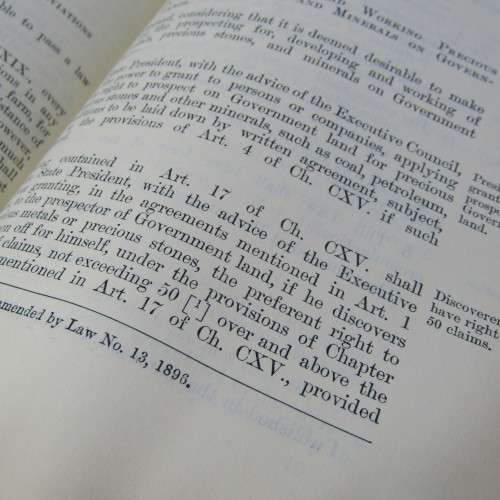 VIATIONS
le to pass a law
XIX,
ions in any
farm, for
every
stance of
owever
much
shall
the
Working Precious
and Minerals on Govern-
considering that it is deemed desirable to make
the prospecting for, developing and working of
precious stones, and minerals on Government
President, with the advice of the Executive Council,
power to grant to persons or companies, applying
right to prospect on Government land for precious
stones and other minerals, such as coal, petroleum,
to be laid down by written agreement, subject,
the provisions of Art. 4 of Ch. CXV. if such
land.
contained in Art. 17 of Ch. CXV. shall
State President, with the advice of the Executive
granting, in the agreements mentioned in Art. 1
to the prospector of Government land, if he discovers
metals or precious stones, the preferent right to
off for himself, under the provisions of Chapter
claims, not exceeding 50 [¹] over and above the
mentioned in Art. 17 of Ch. CXV., provided
Discoverer
have right
50 claims.
amended by Law No. 13, 1896.